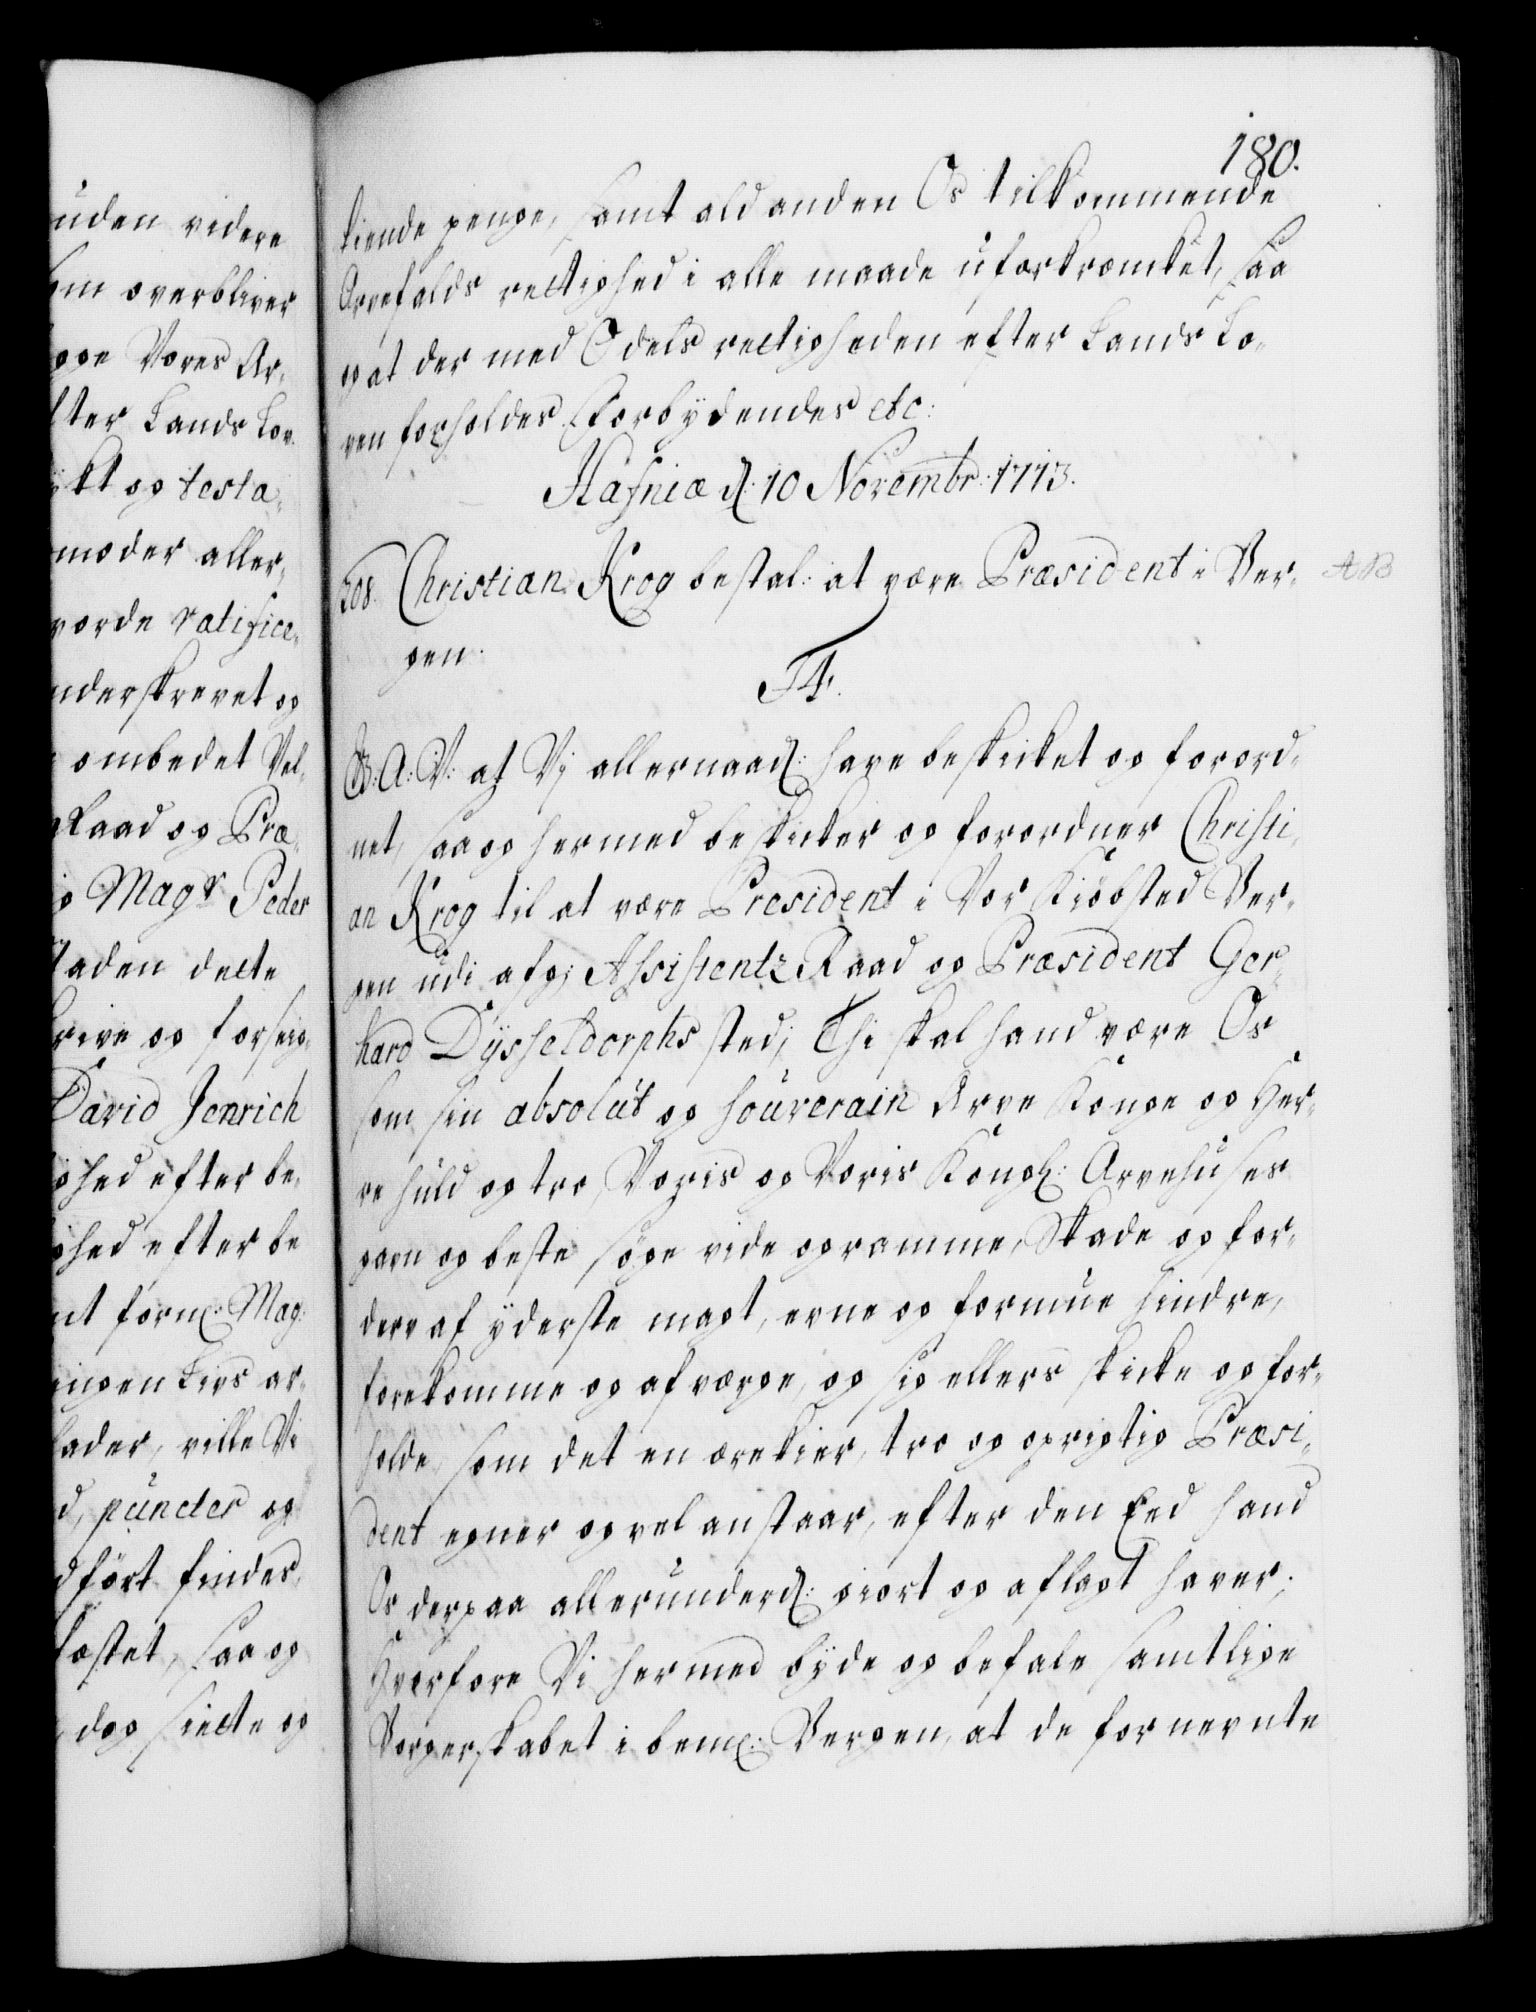 180.
tiende penge, samt ald anden Os tilkommende
Arvefalds rettighed i alle maade uforkrænket, saa
og at der med Odels rettigheden efter Lands Lo-
ven forholdes. Forbydendes etc:
Hafniæ d: 10 Novembr: 1713.
308. Christian Krog bestal: at være Præsident i Ber-
AB
gen.
F4.
G: A: V: at Vi allernaad: have beskicket og forord-
net, saa og hermed beskicker og forordner Christi-
an Krog til at være Præsident i Vor Kiöbsted Ber-
gen udi afg: Assistentz Raad og Præsident Ger-
hard Dysseldorphs sted; Thi skal hand være Os
som sin absolut og souverain Arve Konge og Her-
re huld og tro, Voris og Voris Kongl: Arvehuses
gavn og beste söge vide og ramme, Skade og for-
derv af yderste magt, evne og formue hindre,
forekomme og afværge, og sig ellers skicke og for-
holde, som det en ærekier, tro og oprigtig Præsi-
dent egner og vel anstaar, efter den Eed hand
Os derpaa allerunderd: giort og aflagt haver;
Hvorfore Vi hermed byde og befale samtlige
Borgerskabet i bem: Bergen, at de fornevnte
uden videre
som overbliver
Vores Ar-
Lands Lov.
og testa-
moder aller-
vorde ratifice-
underskrevet og
ombedet Vel-
Raad og Præ-
Magr Peder
Staden dette
skrive og forseig-
David Jenrich
efter be-
efter be
form: Mag:
ingen Livs ar-
lader, ville Vi
puncter og
findes,
saa og
dog siette og